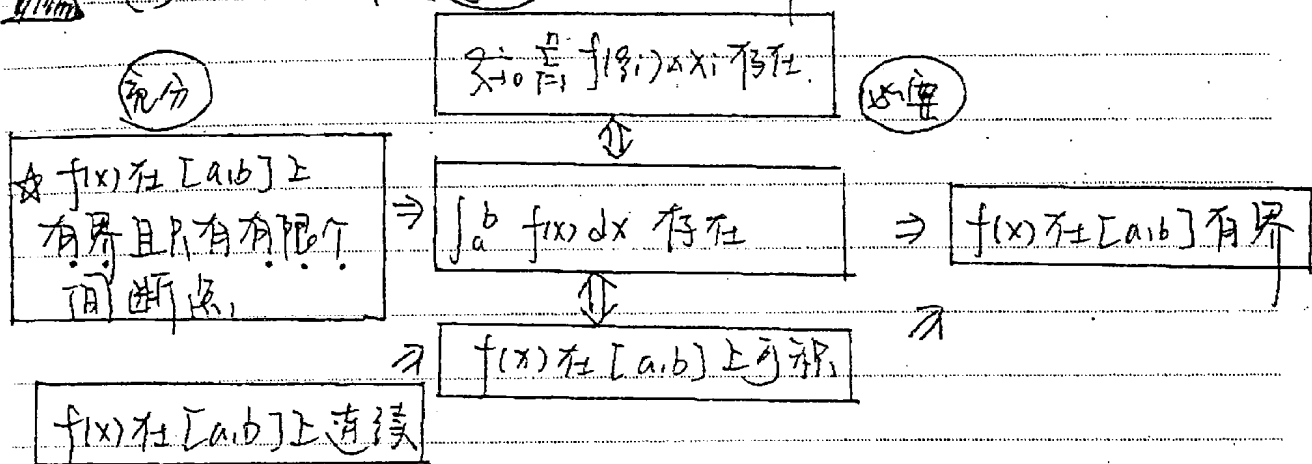 lim_{λ→0} Σ_{i=1}^{n} f(ξi)Δxi 存在.
充分
必要
⇕
☆ f(x)在[a,b]上
有界且只有有限个
间断点,
⇒
∫_a^b f(x)dx 存在
⇒
f(x)在[a,b]有界
⇕
f(x)在[a,b]上可积,
f(x)在[a,b]上连续